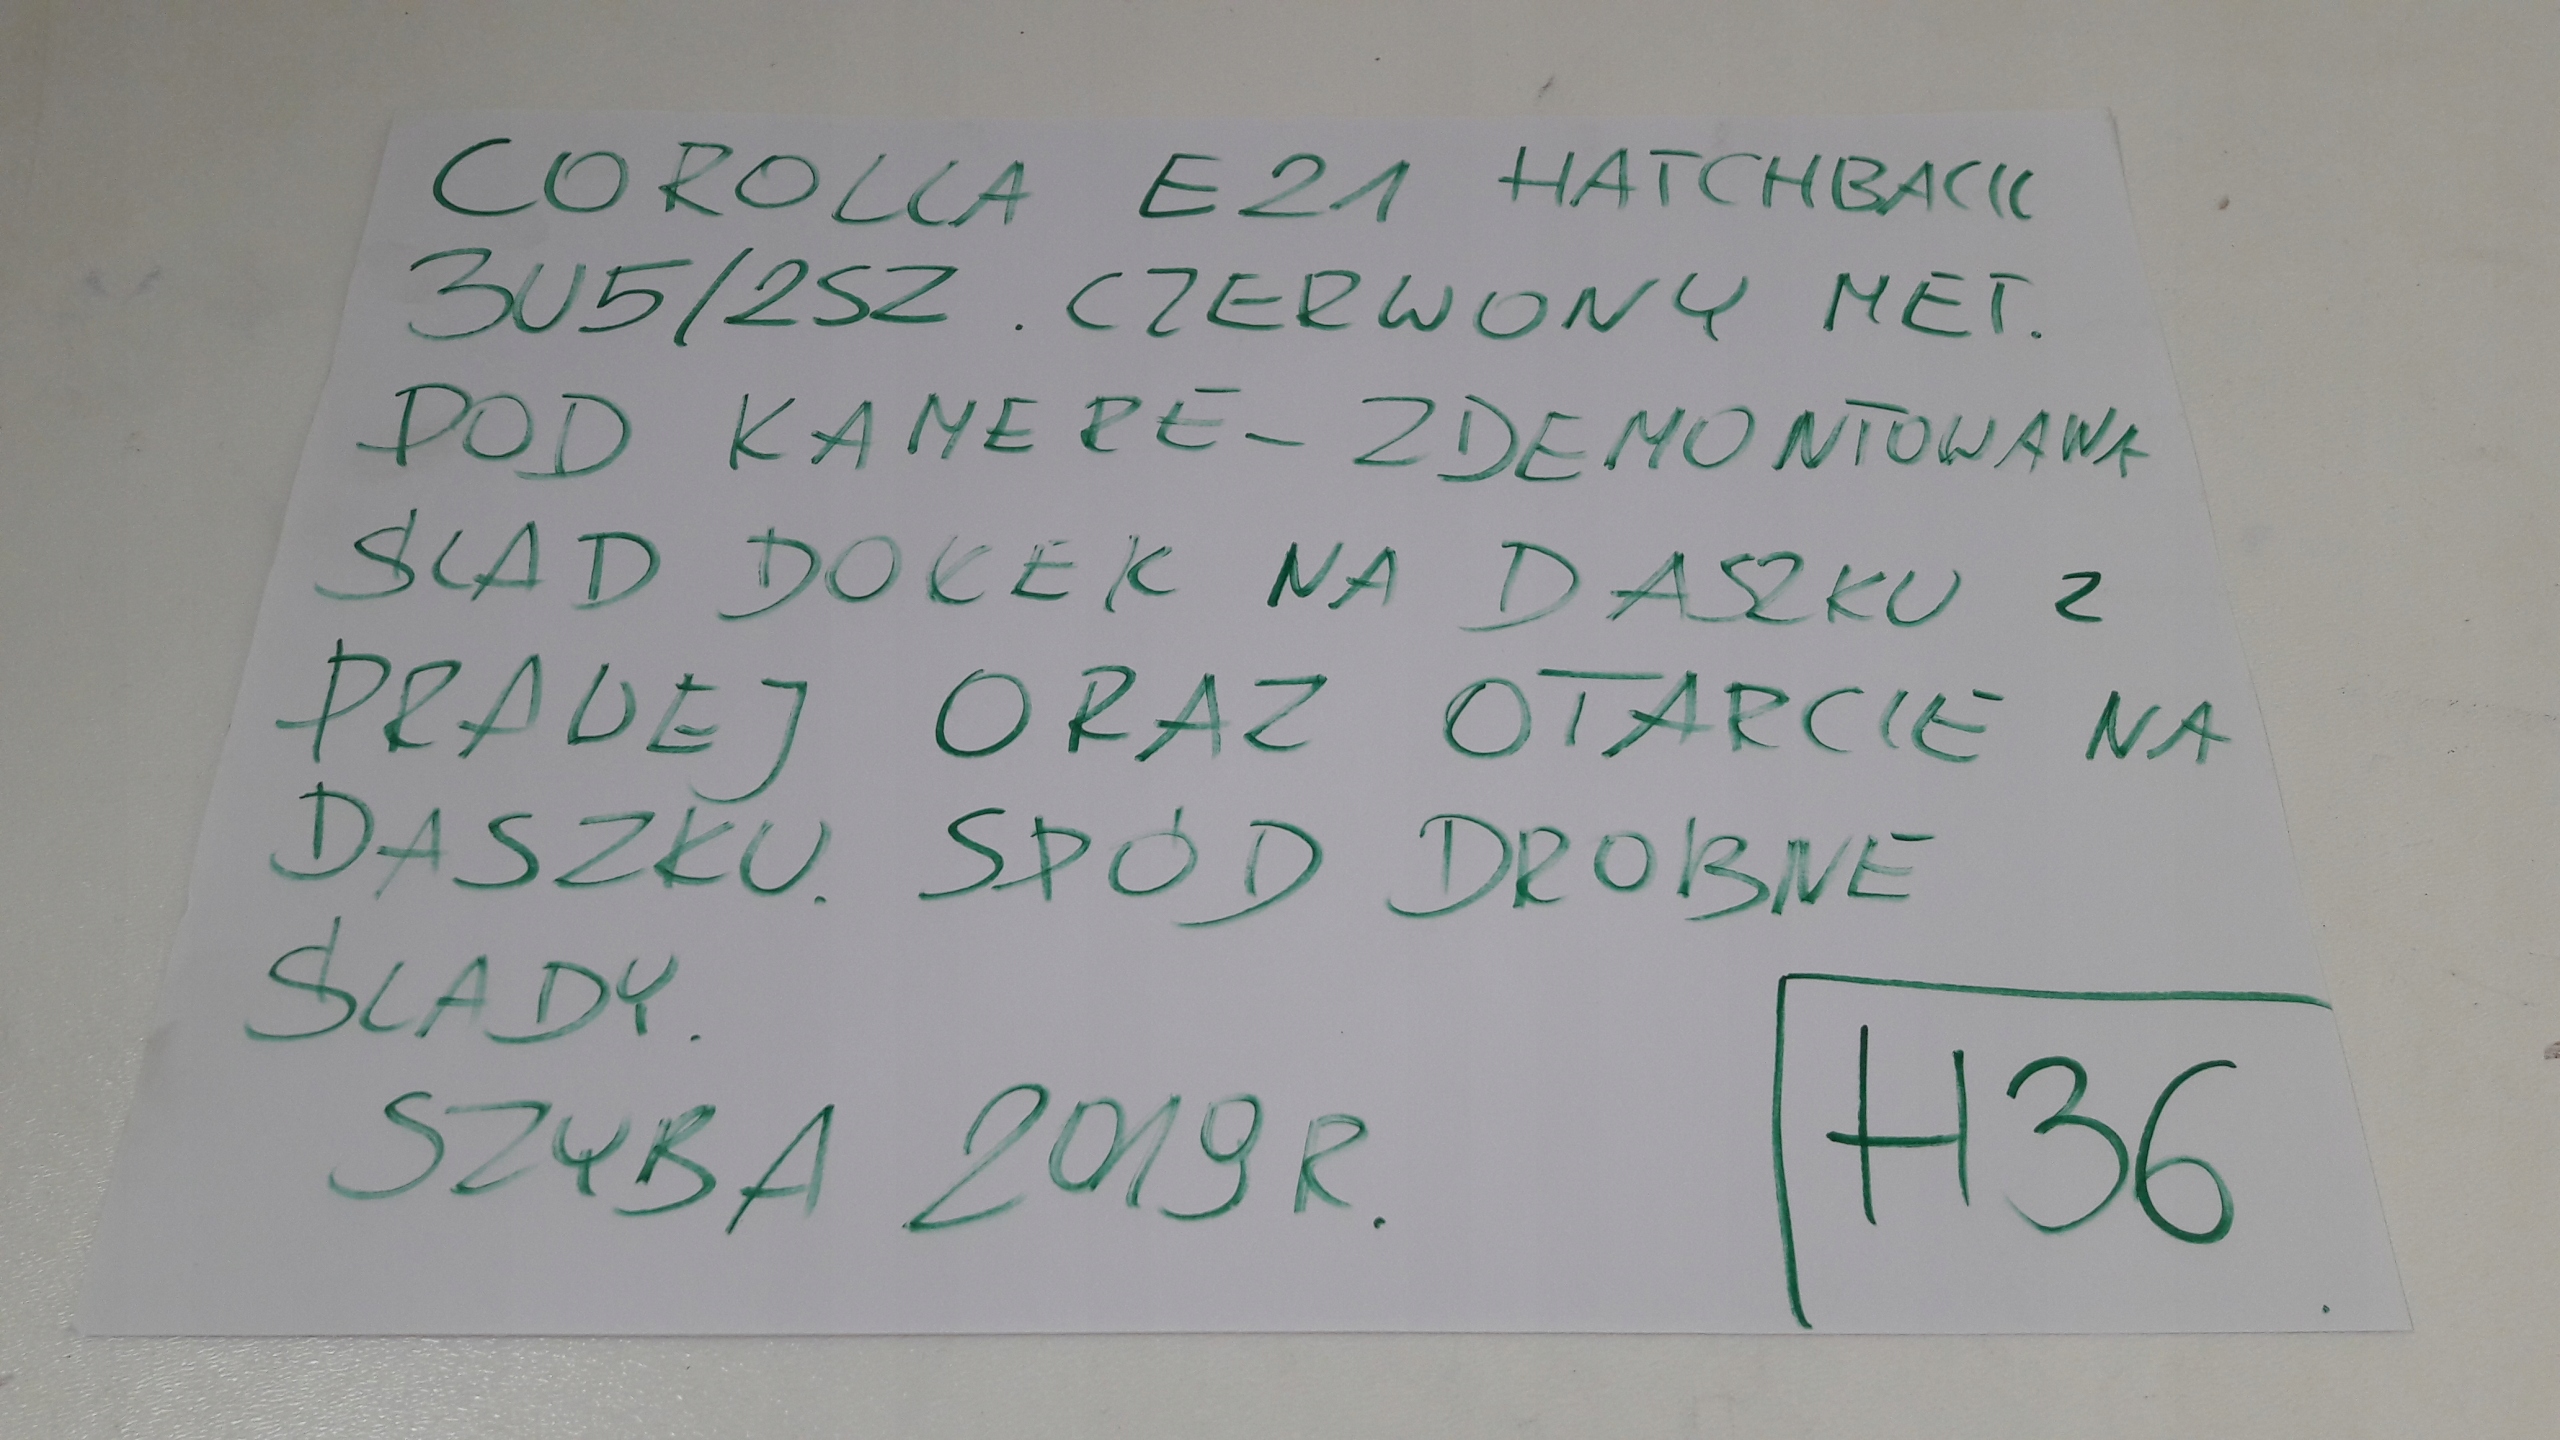 COROLLA E21 HATCHBACK
3U5/2SZ. CZERWONY MET.
POD KAMERE - ZDEMONTOWANA
ŚLAD DOŁEK NA DASZKU Z
PRAWEJ ORAZ OTARCIE NA
DASZKU. SPÓD DROBNE
ŚLADY.
SZYBA 2019R.
H36